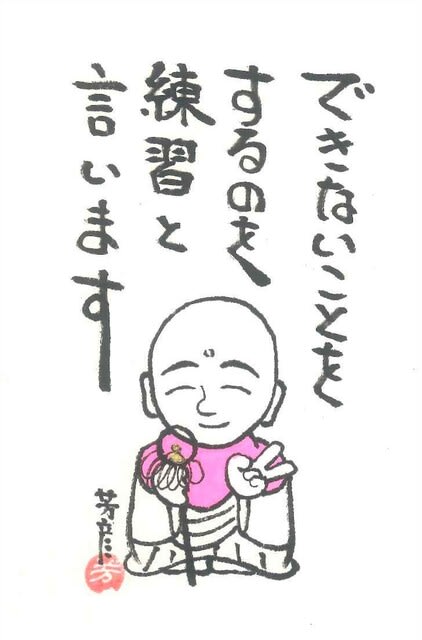 できないことを
するのを
練習と
言います